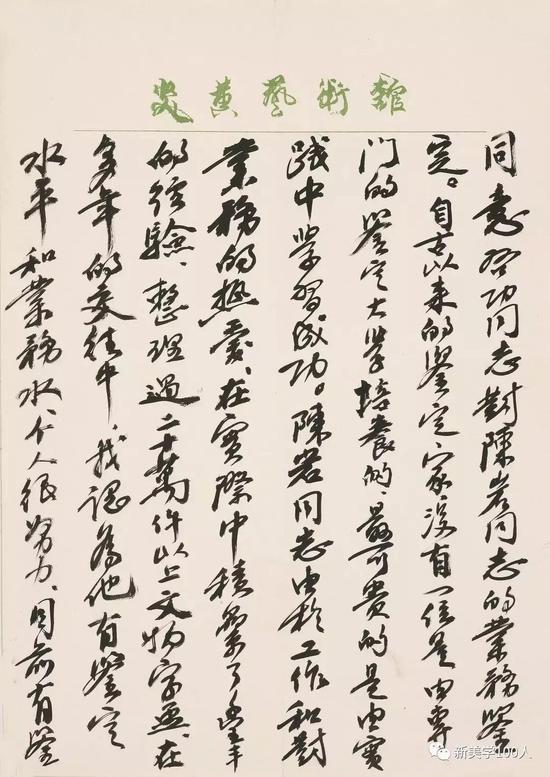 炎黄藝術館
同意啓功同志對陳岩同志的業務鑒
定。自古以来的鑒定家,没有一位是由專
门的鑒定大学培養的,最可貴的是由實
踐中学習。成功。陳岩同志由於工作和對
業務的熱愛,在實際中積纍了豐年
的經驗,整理過二十萬件以上文物字画,在
多年的交往中,我認為他有鑒定
水平和業務水,个人很努力,目前有鑒
新美学100人